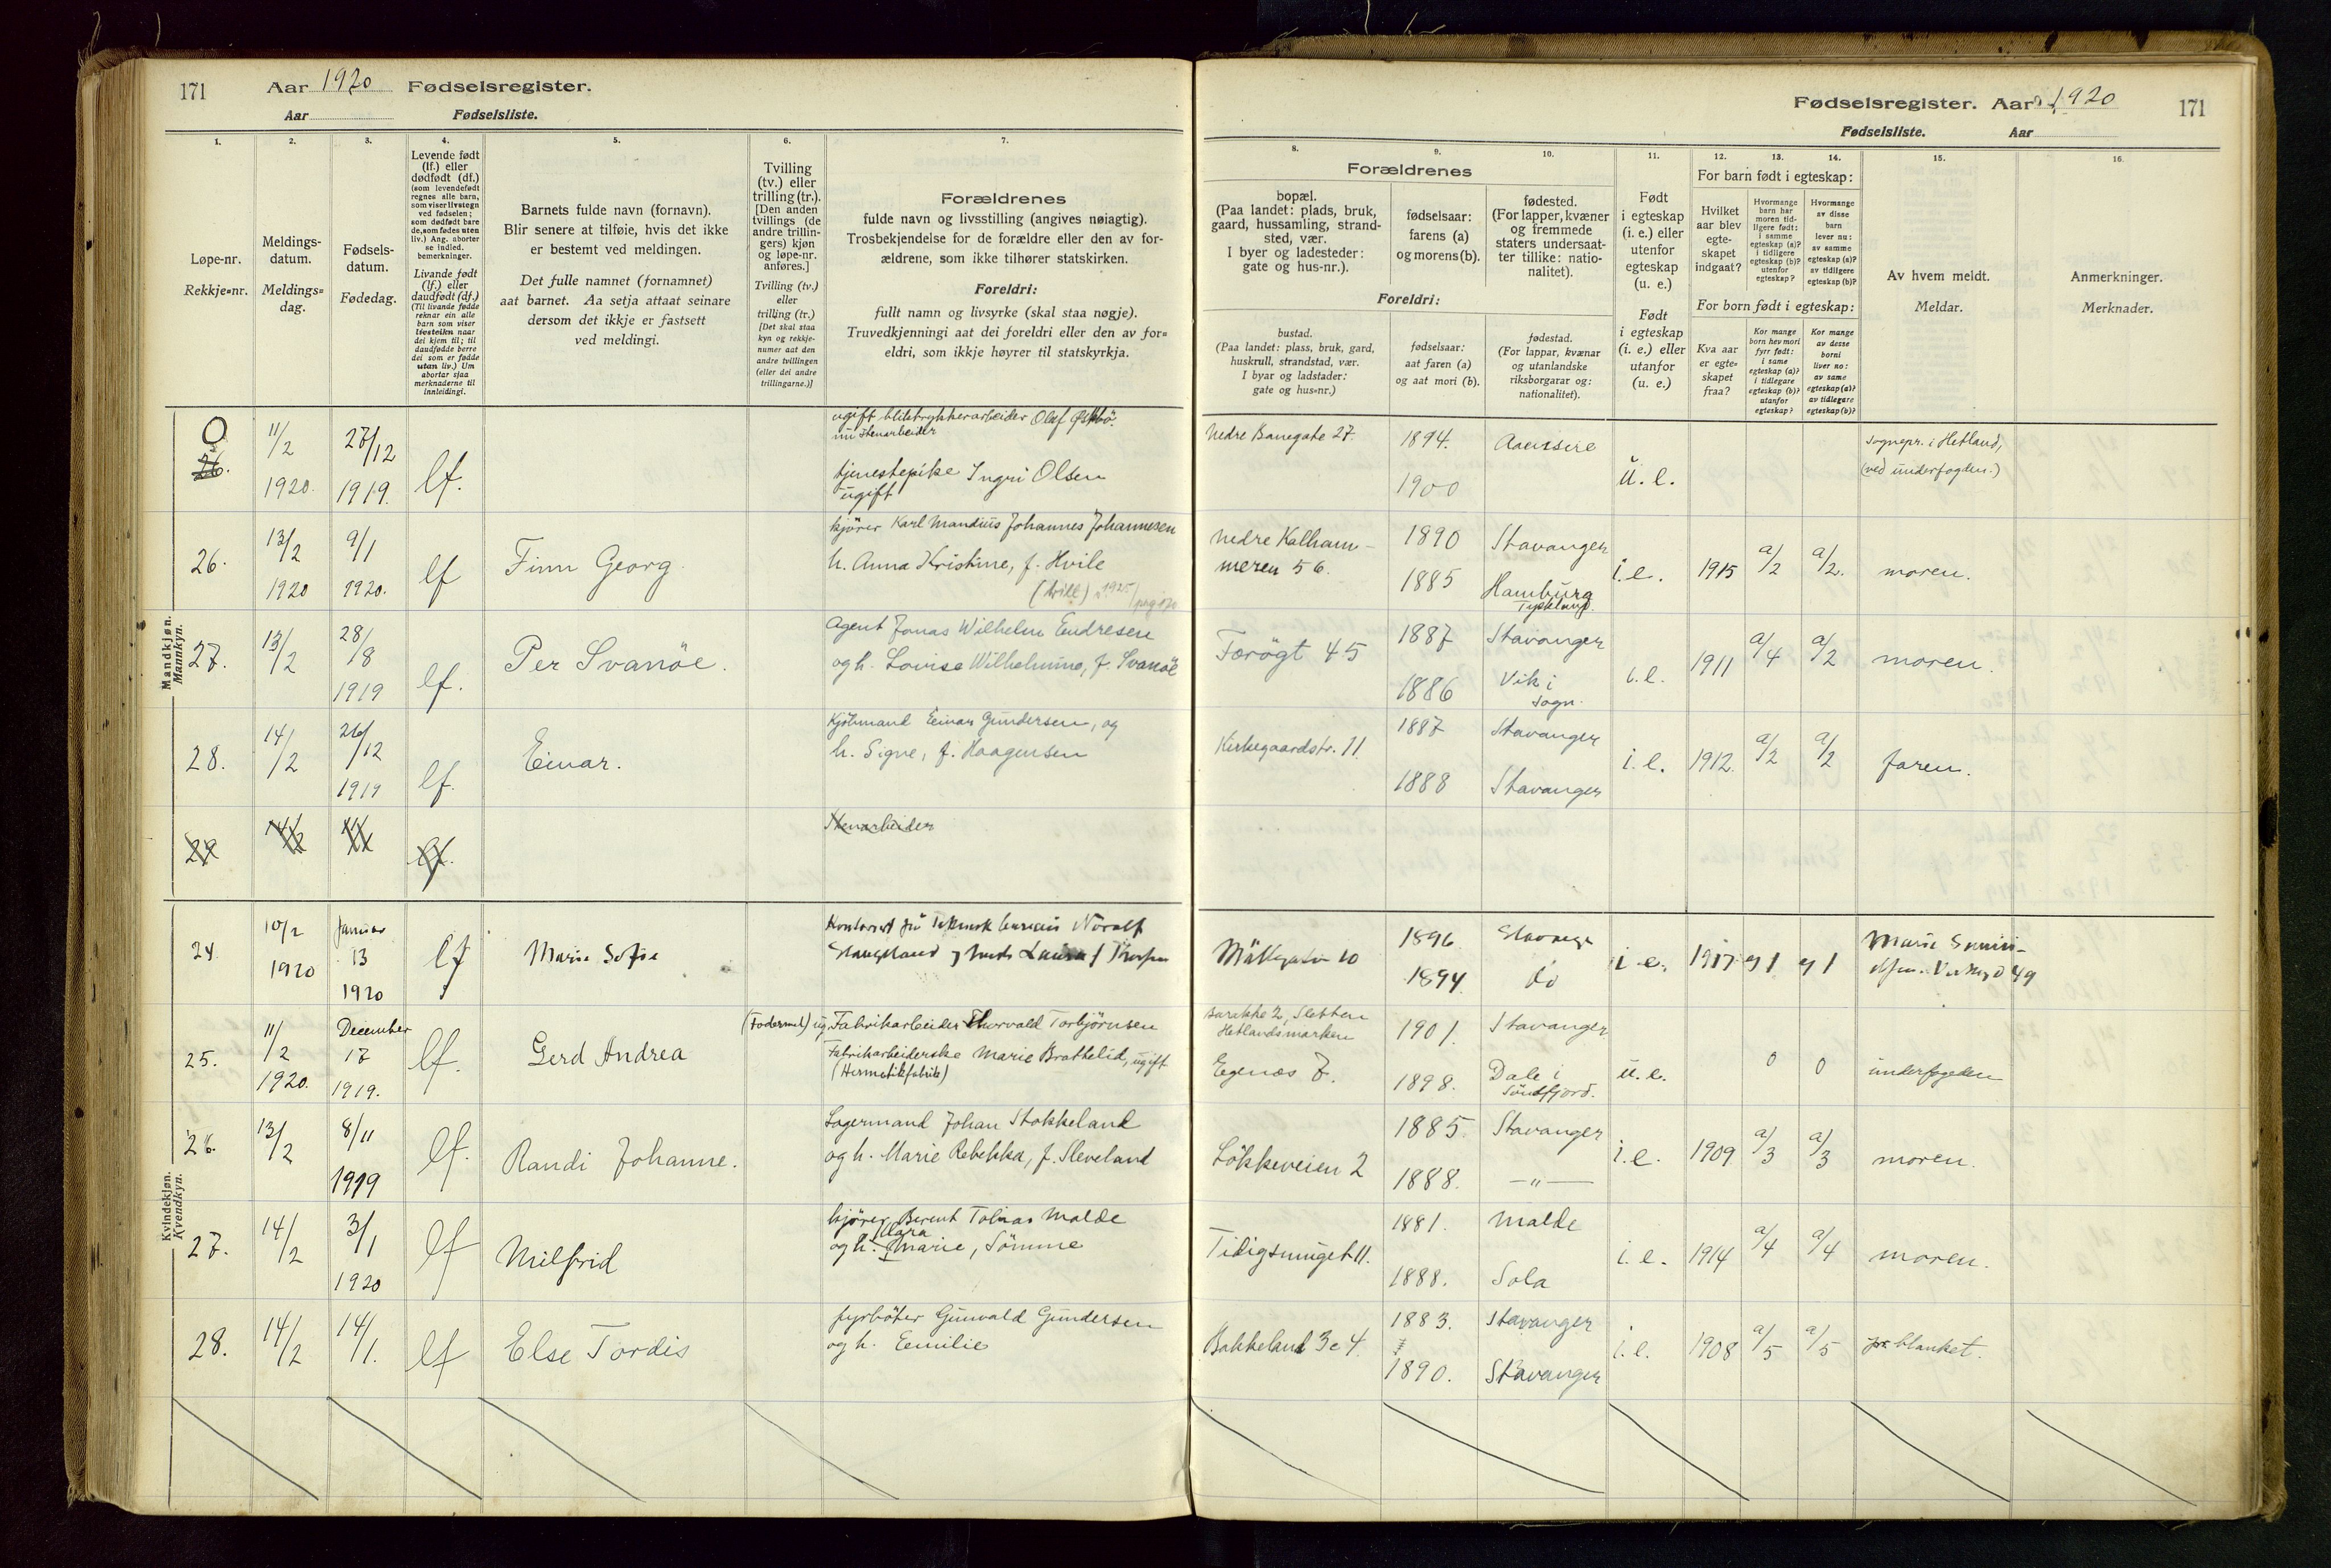 171 Aar 1920 Fødselsregister.
Aar Fødselsliste.
Fødselsregister. Aar 1920 171
Fødselsliste. Aar
1. 2. 3. 4. 5. 6. 7.
8. 9. 10. 11. 12. 13. 14. 15. 16.
Løpe-nr.
Rekkje=nr.
Meldings-
datum.
Meldings=
dag.
Fødsels-
datum.
Fødedag.
Levende født
(lf.) eller
dødfødt (df.)
(som levendefødt
regnes alle barn,
som viser livstegn
ved fødselen;
som dødfødt bare
de, som fødes uten
liv.) Ang. aborter
se indled.
bemerkninger.
Livande født
(lf.) eller
daudfødt (df.)
(Til livande fødde
reknar ein alle
barn som viser
livsteikn naar
dei kjem til; til
daudfødde berre
dei som er fødde
utan liv.) Um
abortar sjaa
merknaderne til
innleidingi.
Barnets fulde navn (fornavn).
Blir senere at tilføie, hvis det ikke
er bestemt ved meldingen.
Det fulle namnet (fornamnet)
aat barnet. Aa setja attaat seinare
dersom det ikkje er fastsett
ved meldingi.
Tvilling
(tv.) eller
trilling (tr.).
[Den anden
tvillings (de
andre trillin-
gers) kjøn
og løpe-nr.
anføres.]
Tvilling (tv.)
eller
trilling (tr.)
[Det skal staa
kyn og rekkje-
numer aat den
andre tvillingen
(eller dei andre
trillingarne.)]
Forældrenes
fulde navn og livsstilling (angives nøiagtig).
Trosbekjendelse for de forældre eller den av for-
ældrene, som ikke tilhører statskirken.
Foreldri:
fullt namn og livsyrke (skal staa nøgje).
Truvedkjenningi aat dei foreldri eller den av for=
eldri, som ikkje høyrer til statskyrkja.
Forældrenes
bopæl.
(Paa landet: plads, bruk,
gaard, hussamling, strand-
sted, vær.
I byer og ladesteder:
gate og hus-nr.).
fødselsaar:
farens (a)
og morens (b).
fødested.
(For lapper, kvæner
og fremmede
staters undersaat-
ter tillike: natio-
nalitet).
Foreldri:
bustad.
(Paa landet: plass, bruk, gard,
huskrull, strandstad, vær.
I byar og ladstader:
gate og hus-nr.)
fødselsaar:
aat faren (a)
og aat mori (b).
fødestad.
(For lappar, kvænar
og utanlandske
riksborgarar og:
nationalitet).
Født
i egteskap
(i. e.) eller
utenfor
egteskap
(u. e.)
Født
i egteskap
(i. e.) eller
utanfor
(u. e.)
For barn født i egteskap:
Hvilket
aar blev
egte-
skapet
indgaat?
Hvormange
barn har
moren tid-
ligere født:
i samme
egteskap (a)?
i tidligere
egteskap (b)?
utenfor
egteskap?
Hvormange
av disse
barn
lever nu:
av samme
egteskap (a)?
av tidligere
egteskap (b)?
For born født i egteskap:
Kva aar
er egte-
skapet
fraa?
Kor mange
born hev mori
fyrr født:
i same
egteskap (a)?
i tidlegare
egteskap (b)?
utanfor
egteskap?
Kor mange
av desse
borni
liver no:
av same
egteskap (a)?
av tidlegare
egteskap (b)?
Av hvem meldt.
Meldar.
Anmerkninger.
Merknader.
Mandkjøn.
Mannkyn.
0
26. 11/2 1920. 27/12 1919. lf.
ugift bliktrykkerarbeider Olaf
nu stenarbeider
tjenestepike Ingri Olsen
ugift
Nedre Banegate 27. 1894. 1900 u. e.
sognepr. i Hetland,
(ved underfogden.)
26. 13/2 1920 9/1 1920. lf Finn Georg.
kjører Karl Mandius Johannes Johannesen
h. Anna Kristine, f. Hvile
1925
Nedre Kalham-
meren 56. 1890 Stavanger
1885 Hamburg
Tyskland.
i. e. 1915 a/2 a/2. moren.
27. 13/2 28/8 1919 lf. Per Svanöe.
Agent Jonas Wilhelm Endresen
og h. Lovise Wilhelmine, f. Svanöe
Færögt 45 1887 Stavanger
1886 Vik i
Sogn.
i. e. 1911 a/4 a/2 moren.
28. 14/2 26/12 1919 lf. Einar.
Kjöbmand Einar Gundersen, og
h. Signe, f. Haagensen
Kirkegaardstr. 11. 1887 Stavanger
1888 Stavanger
i. e. 1912. a/2 a/2 faren.
29 lf.
Stenarbeider
Kvindekjøn.
Kvendkyn.
24. 10/2 1920 Januar 13 1920 lf Marie Sofie
Mö 10 1896. Stavanger
1894. do
i. e. 1917. 1 1
Marie
49
25. 11/2 1920. December 17 1919. lf. Gerd Andrea
ug. Fabrikarbeider Thorvald Torbjörnsen
Fabrikarbeiderske Marie Brathelid, ugift
(Hermetikfabrik)
Barakke 2, Sletten
Hetlandsmarken
Egenæs 7. 1901. Stavanger
1898. Dale i
Söndfjord.
u. e. 0 0 underfogden
26. 13/2 8/11 1919 lf. Randi Johanne.
Lagermand Johan Stokkeland
og h. Marie Rebekka, f. Sleveland
Lökkeveien 2 1885. Stavanger
1888. —"—
i. e. 1909 a/3 a/3 moren.
27. 14/2 3/1 1920 lf Milfrid
kjører Berent Tobias Malde
Klara
og h. Marie, Sömme
Tidigsmuget 11. 1881. Malde
1888. Sola
i. e. 1914 a/4 a/4 moren.
28. 14/2 14/1. lf Else Tordis
fyrböter Gunvald Gundersen
og h. Emilie
Bakkeland 3c 4. 1883. Stavanger
1890. Stavanger
i. e. 1908 a/5 a/5 pr. blanket.